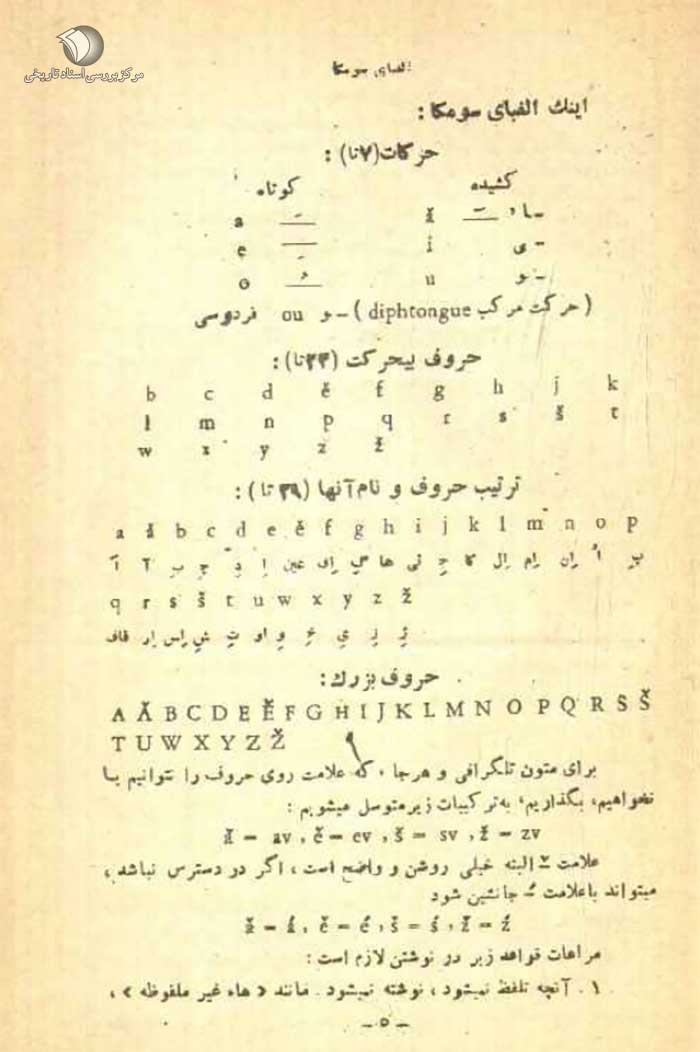 مرکز بررسی اسناد تاریخی
الفبای سومکا
اینك الفبای سومکا :
حرکات(۷تا) :
کشیده کوتاه
ـا، آ ǎ ـَ a
ـی i ـِ e
ـو u ـُ o
( حرکت مرکب diphtongue ) ـو ou فردوسی
حروف بیحرکت (۲۳تا) :
b c d ě f g h j k
l m n p q r s š t
w x y z ž
ترتیب حروف و نام آنها (۲۹ تا) :
a ǎ b c d e ě f g h i j k l m n o p
اَ آ بِ چِ دِ اِ عین اِف گِ ها ئی جِ کا اِل اِم اِن اُ پِ
q r s š t u w x y z ž
قاف اِر اِس شِ تِ او وِ خِ یِ زِ ژِ
حروف بزرك :
A Ǎ B C D E Ě F G H I J K L M N O P Q R S Š
T U W X Y Z Ž
برای متون تلگرافی و هرجا، که علامت روی حروف را نتوانیم یا
نخواهیم، بگذاریم، به‌ترکیبات زیرمتوسل میشویم :
ǎ = av , ě = ev , š = sv , ž = zv
علامت ˇ البته خیلی روشن و واضح است، اگر در دسترس نباشد،
میتواند باعلامت ´ جانشین شود
ǎ = á , ě = é , š = ś , ž = ź
مراعات قواعد زیر در نوشتن لازم است :
۱ . آنچه تلفظ نمیشود، نوشته نمیشود. مانند « هاء غیر ملفوظه » ،
ـ ۵ ـ